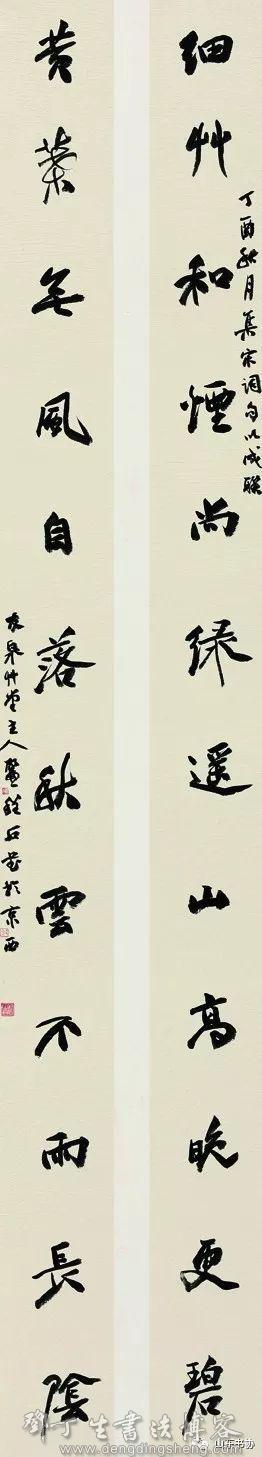 细艸和煙尚绿遥山高晚更碧
丁酉秋月集宋词句以成联
黄葉無風自落秋雲不雨長陰
泉艸堂主人石於京西
邓丁生書法博客
www.dengdingsheng.com
山东书协